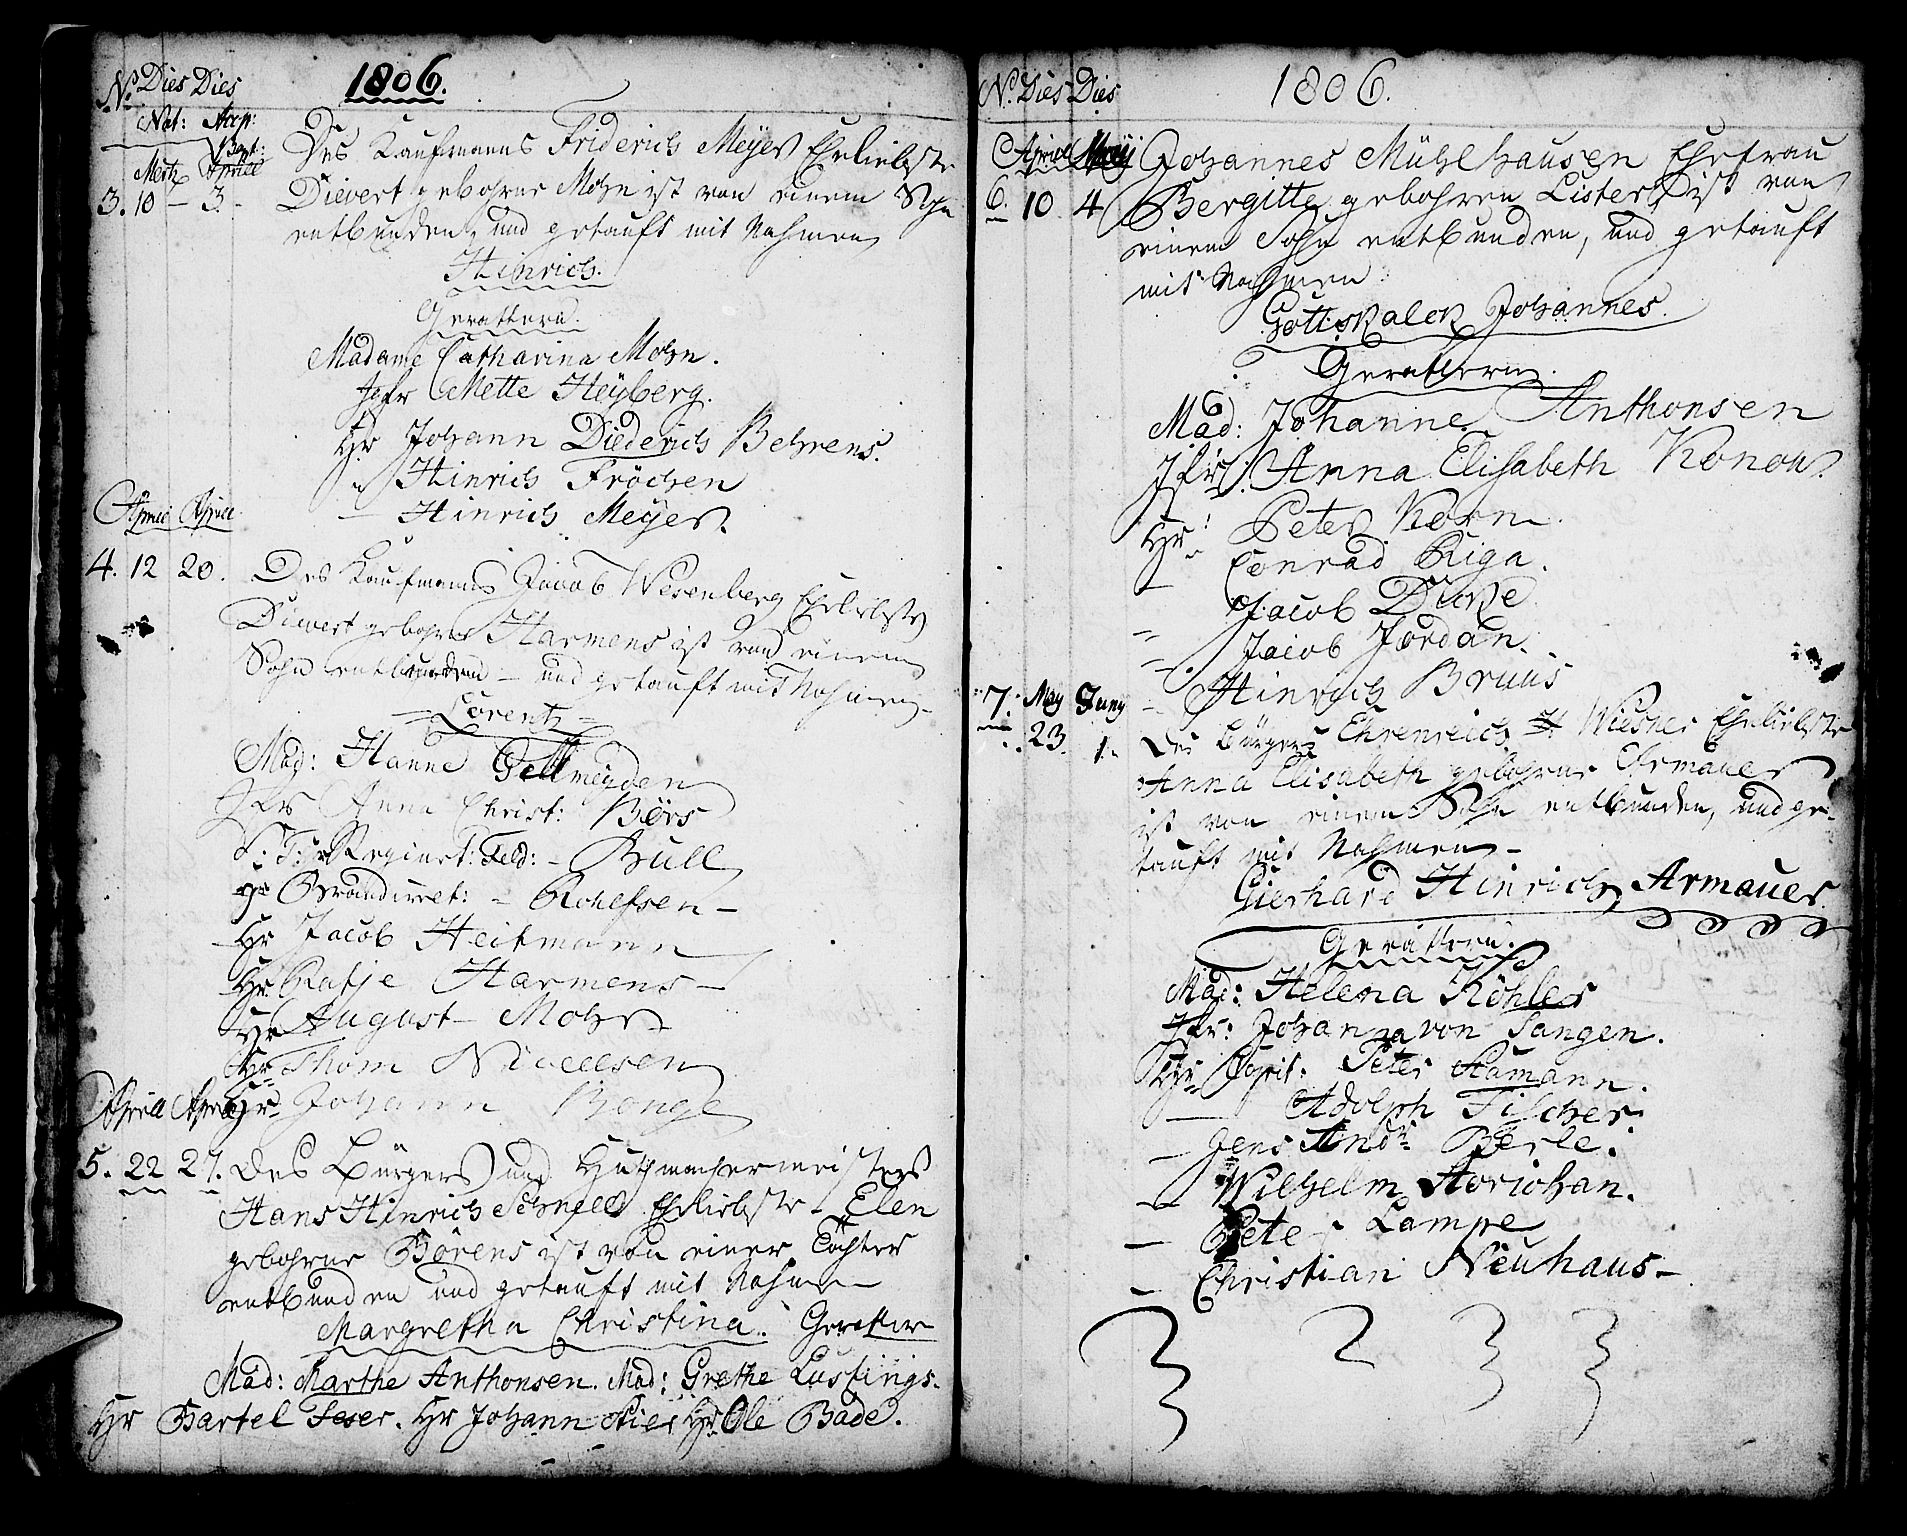 N. Dies Dies 1806.
Nat: Accp:
Bapt:
Mertz Aprill
Des Kaufmanns Friderich Meyer Eheliebste
3. 10 - 3. Dievert gebohrne Mohn ist von einem Sohn
entbunden, und getauft mit Nahmen
Hinrich.
Gevattern.
Madame Catharina Mohn.
Jgfr Mette Heyberg.
Hr Johann Diederich Behrens.
" Hinrich Fröchen
— Hinrich Meyer.
Aprill Aprill
4. 12 20. Des Kaufmanns Jacob Wesenberg Eheliebste
Dievert gebohrne Harmens ist von einem
Sohn entbunden - und getauft mit Nahmen -
= Lorentz =
Mad: Hanne Gellmeyden
Jfr Anna Christ: Börs
Regimet: Feld: - Bull
Hr Branddirret: - Rolefsen -
Hr Jacob Heitmann
Hr Ratje Harmens -
Hr August Mohr
Hr Thom Nicellsen
Hr Johann Bonge
Aprill Aprill
5. 22 27. Des Bürgers und Huthmachermeisters
Hans Hinrich Schnell Eheliebste Elen
gebohrne Börens ist von einer Tochter
entbunden und getauft mit Nahmen
Margretha Christina. Gevatter
Mad: Marthe Anthonsen. Mad: Grethe Lustings.
Hr Bartel Feser. Hr Johann Stier Hr Ole Bade.
N. Dies Dies 1806.
Aprill Meij Johannes Mühlhausen Ehefrau
6. 10 4 Bergitte gebohren Lister, ist von
einem Sohn entbunden, und getauft
mit Nahmen:
Gottskalck Johannes.
Gevattern.
Mad: Johanne Anthonsen
Jfr: Anna Elisabeth Konow.
Hr: Peter Korn.
" Conrad Riga.
— Jacob Dicke
= Jacob Jordan.
= Hinrich Bruus
7. May Juny
23. 1. Des Bürgers Ehrenreich Wiesner Eheliebste
Anna Elisabeth gebohrne Armauer
ist von einem Sohn entbunden, und ge-
tauft mit Nahmen -
Gierhard Hinrich Armauer.
Gevattern.
Mad: Helena Köhler
Jfr: Johanna von Tangen.
Hr Capit: Peter Hamann.
— Adolph Fischer.
— Jens Andr Berle.
— Wilhelm Storjohan.
— Peter Lampe
— Christian Neuhaus -